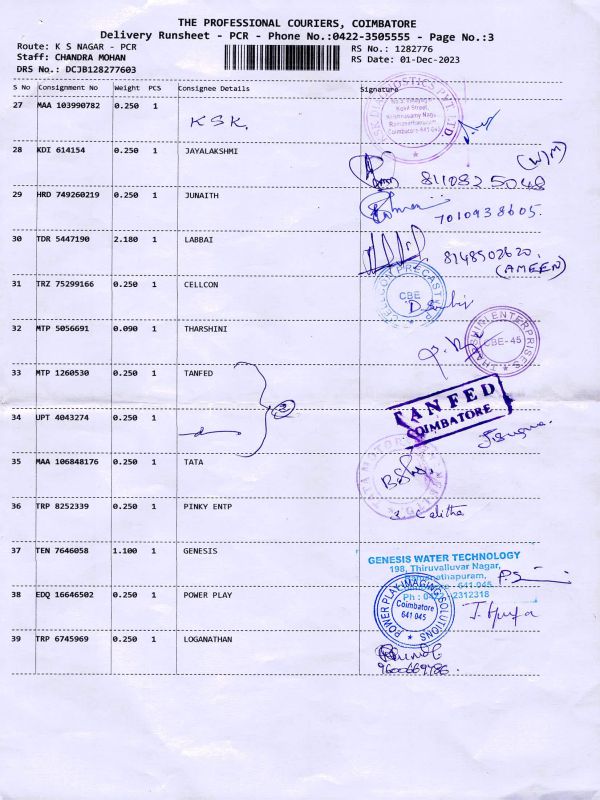 THE PROFESSIONAL COURIERS, COIMBATORE
Delivery Runsheet - PCR - Phone No.:0422-3505555 - Page No.:3
Route: K S NAGAR - PCR
RS No.: 1282776
Staff: CHANDRA MOHAN
RS Date: 01-Dec-2023
DRS No.: DCJB128277603
S No Consignment No Weight PCS Consignee Details Signature
27 MAA 103990782 0.250 1
KSK
Krishnasamy Nagar
Ramanathapuram
Coimbatore 641 045
28 KDI 614154 0.250 1 JAYALAKSHMI
(W/M)
8110825048
29 HRD 749260219 0.250 1 JUNAITH
7010938605.
30 TDR 5447190 2.180 1 LABBAI
8148502620.
(AMEEN)
31 TRZ 75299166 0.250 1 CELLCON
CBE
32 MTP 5056691 0.090 1 THARSHINI
THARSHINI ENTERPRISES
CBE-45
33 MTP 1260530 0.250 1 TANFED
2
TANFED
COIMBATORE
34 UPT 4043274 0.250 1
35 MAA 106848176 0.250 1 TATA
36 TRP 8252339 0.250 1 PINKY ENTP
37 TEN 7646058 1.100 1 GENESIS
GENESIS WATER TECHNOLOGY
198, Thiruvalluvar Nagar,
38 EDQ 16646502 0.250 1 POWER PLAY
POWER PLAY IMAGING SOLUTIONS
Coimbatore
641 045
39 TRP 6745969 0.250 1 LOGANATHAN
9600669786.